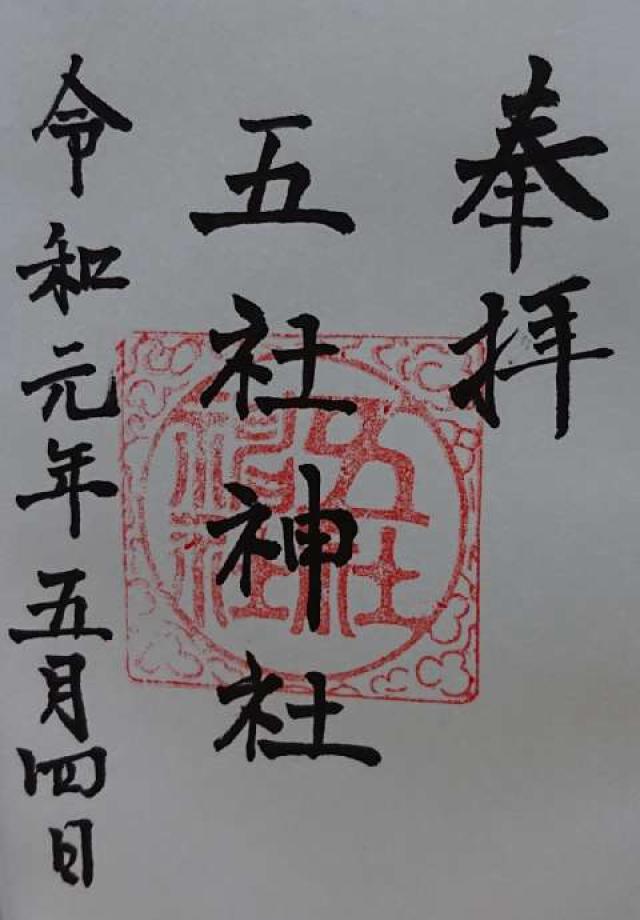 奉拝
五社神社
五社
神社
令和元年五月四日